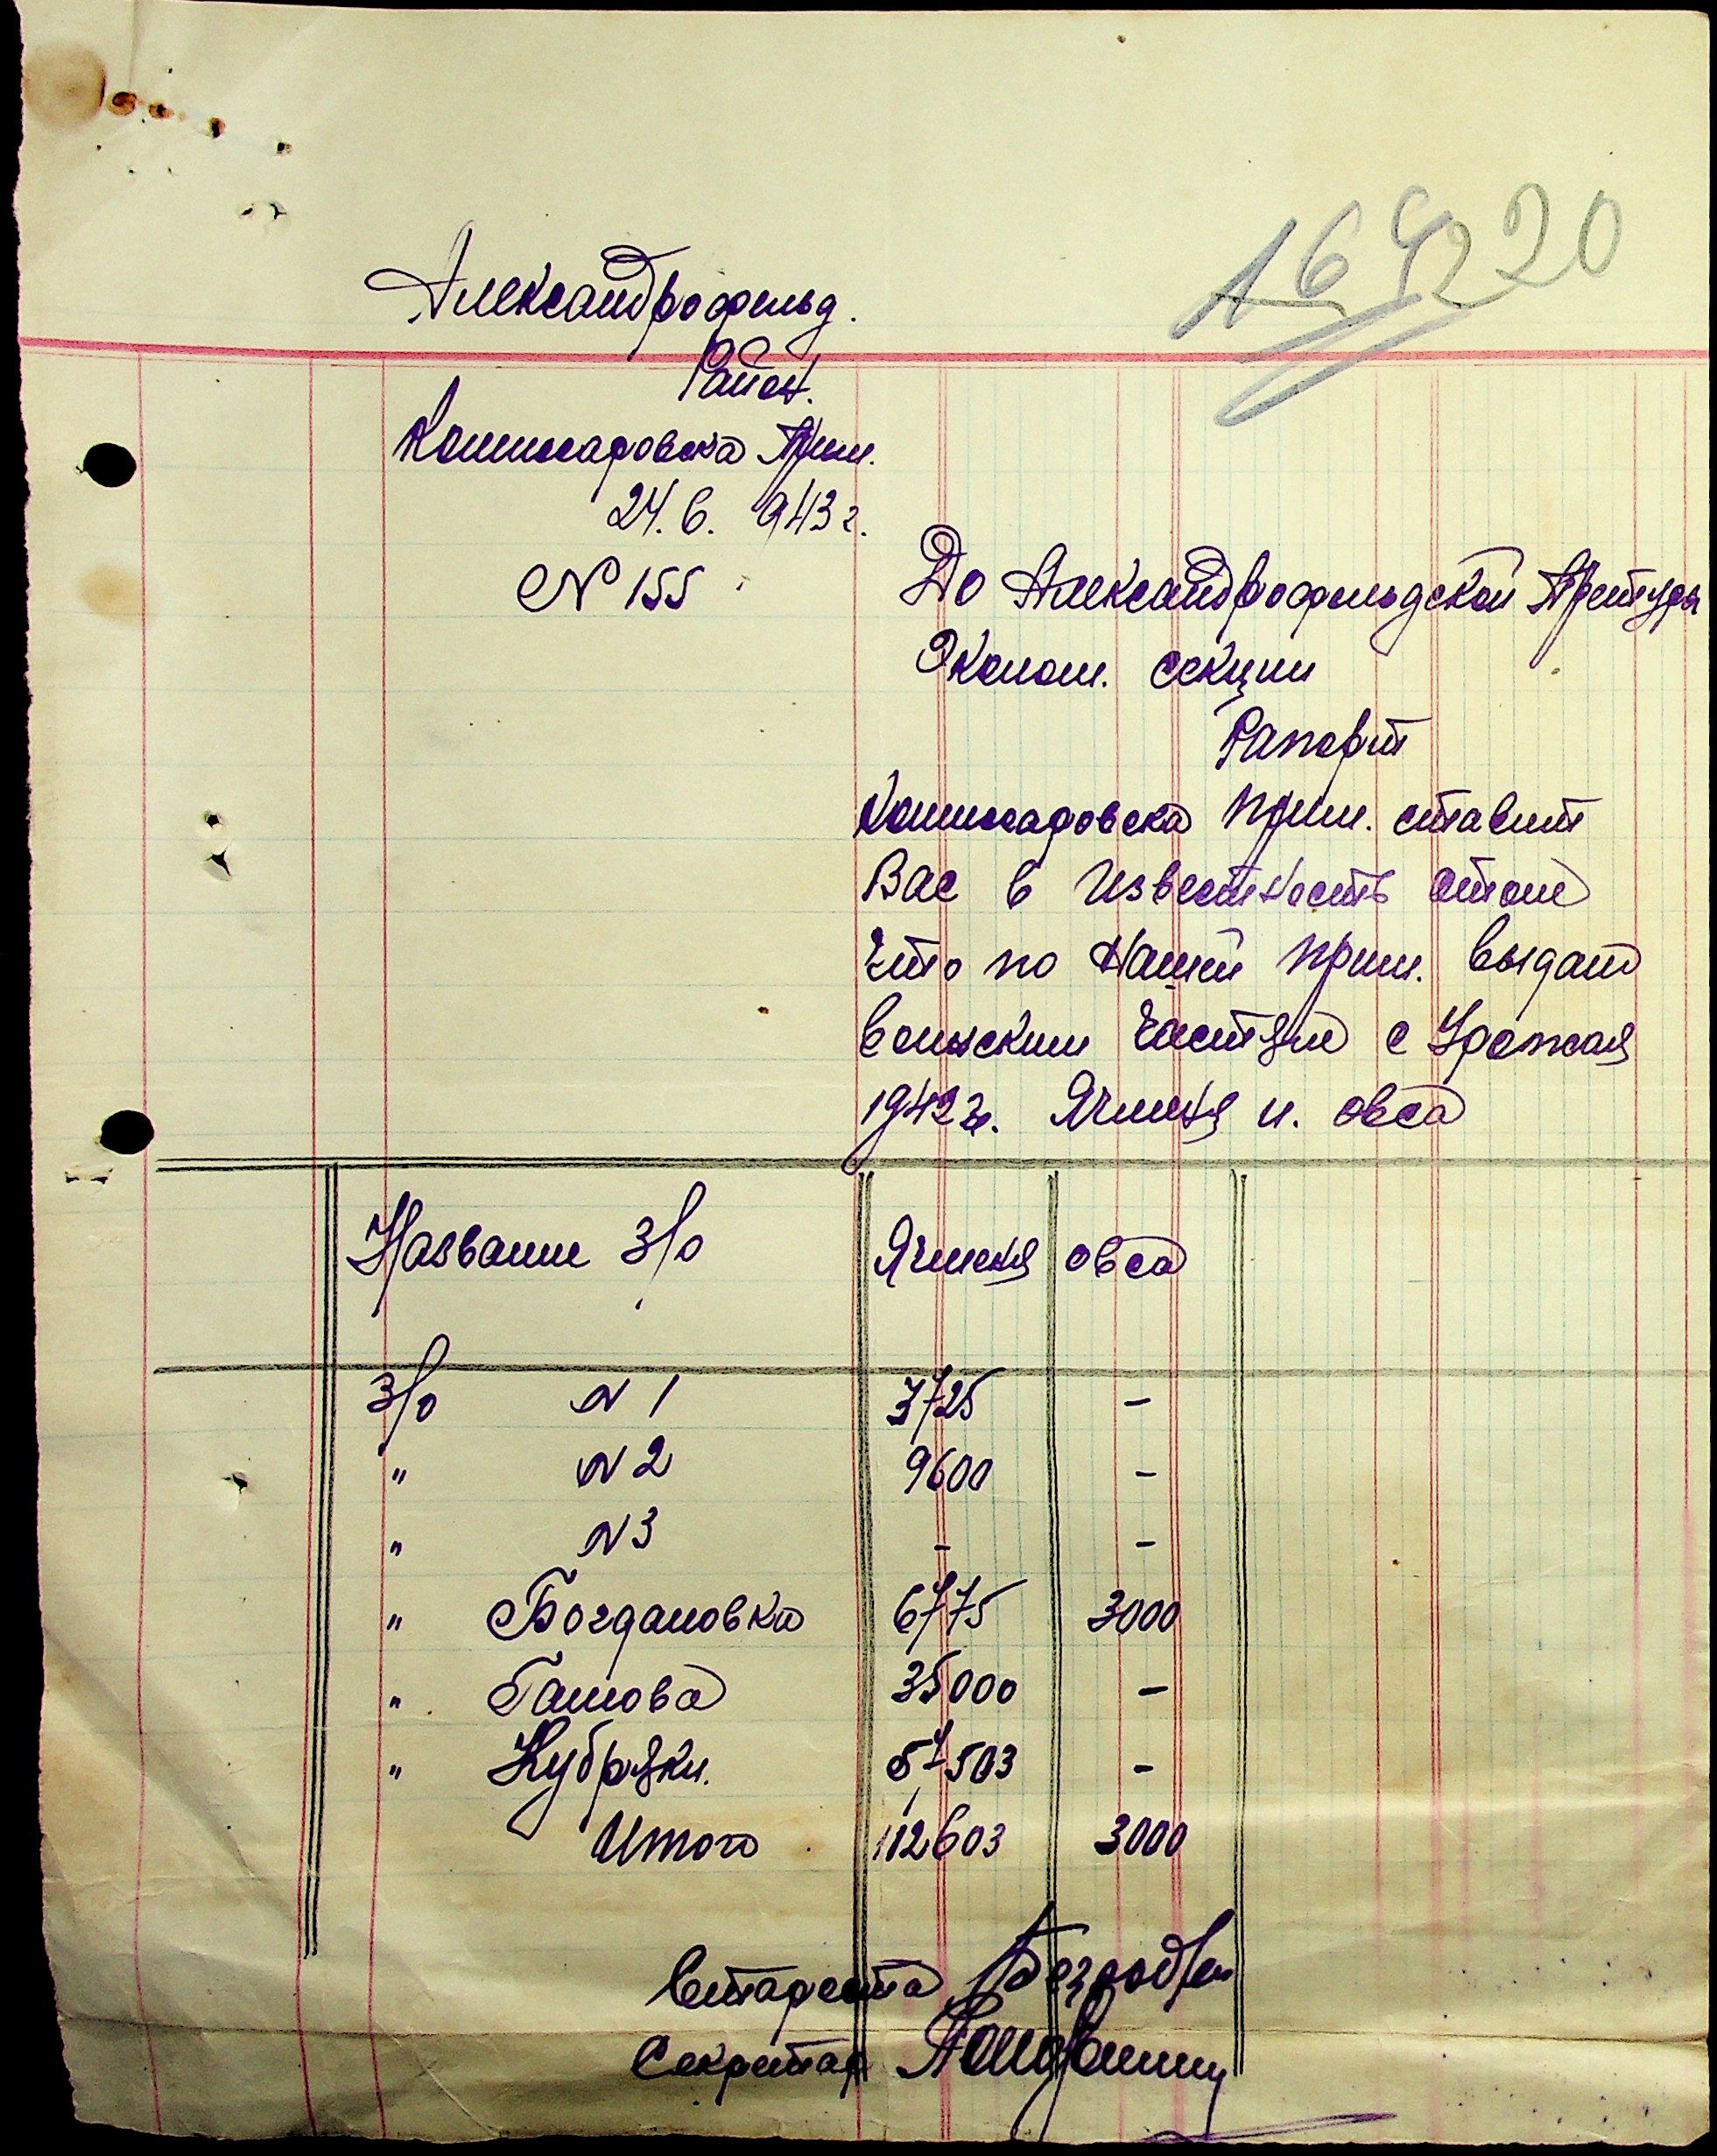 А 64220
Александрофельд.
Район.
Комиссаровска Прим.
24.6. 943 г.
№ 155
До Александрофельдской Претуры
Эконом. секции
Рапорт
Комиссаровска прим. ставит
Вас в известность отом
Что по нашей прим. выдано
воинским частям с Урожая
1942 г. Ячменя и. овса
Название з/о Ячменя овса
З/о № 1 3725 –
" № 2 9600 –
" № 3 – –
" Богдановка 6775 3000
" Гамова 35000 –
" Кубряки. 57503 –
Итого 112603 3000
Староста
Секретар